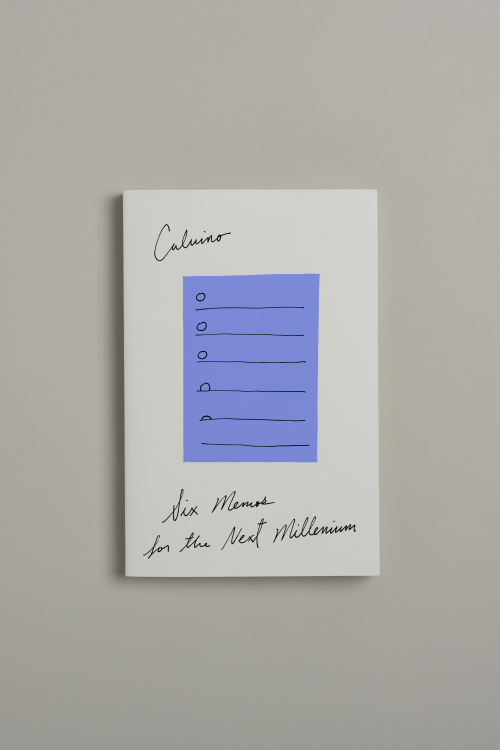 Calvino
Six Memos
for the Next Millenium